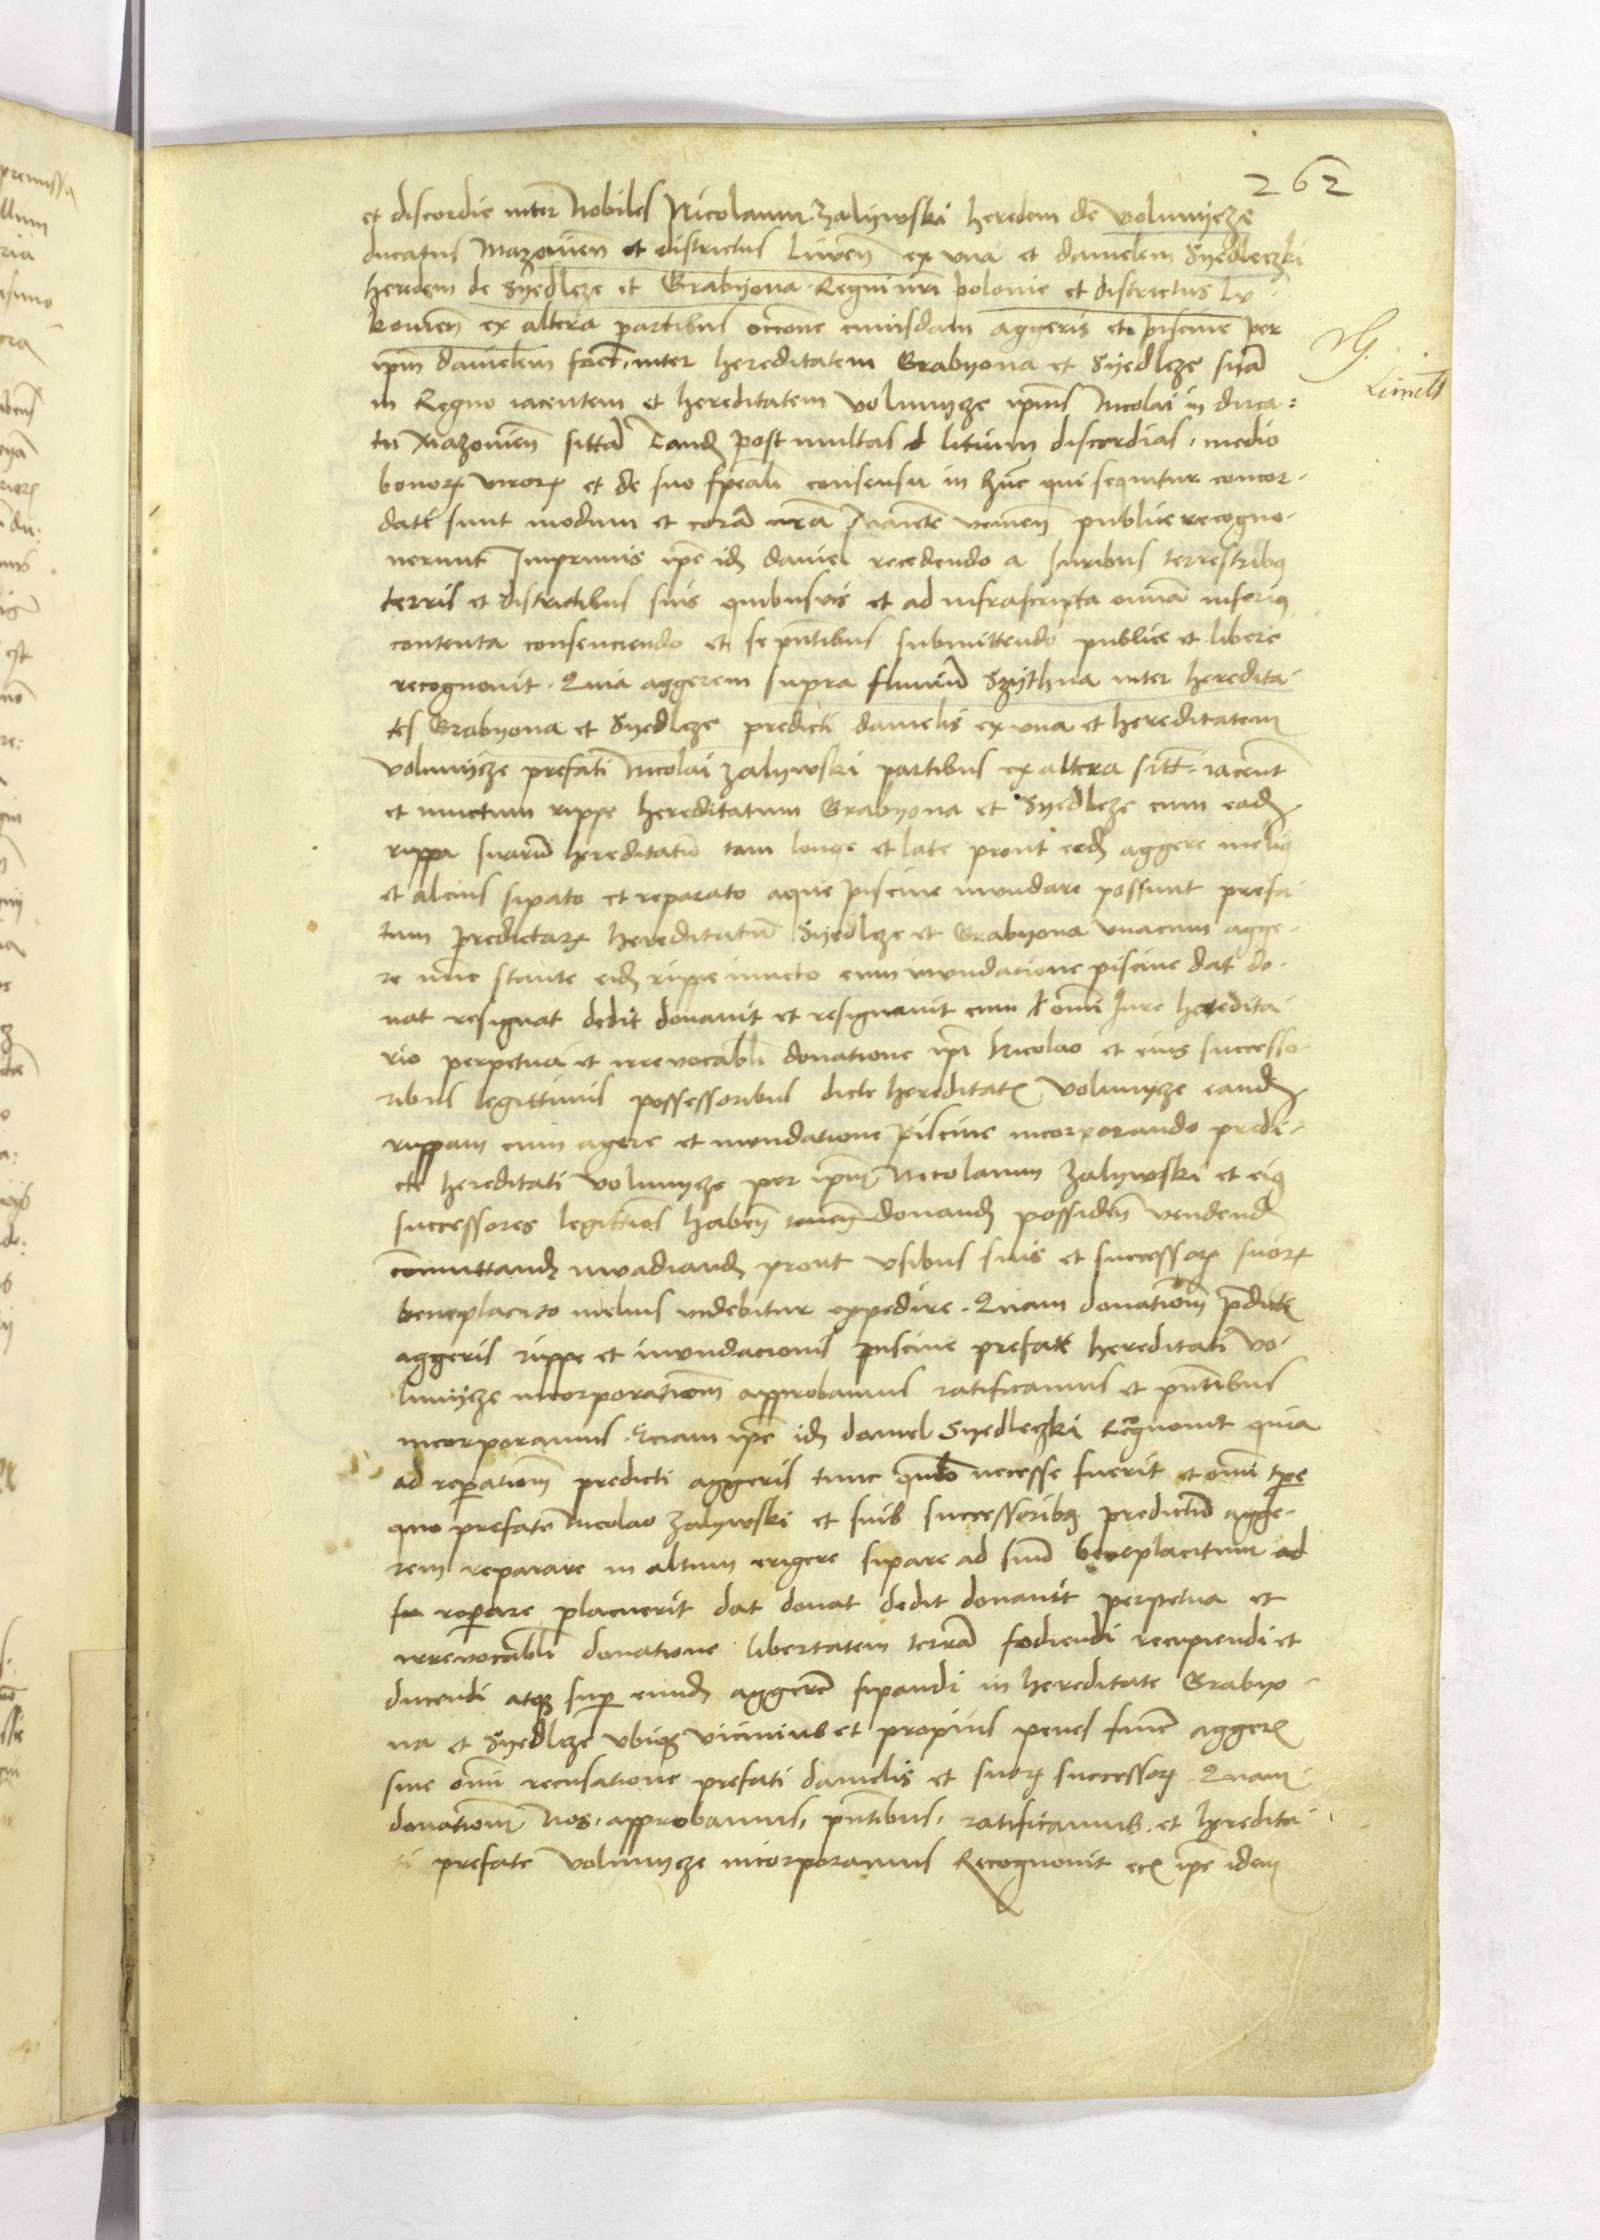 262
et discordie inter Nobiles Nicolaum Zalijwski heredem de Volunijcze
ducatus Mazovien̄ et districtus Liven̄ ex vna et danielem Sijedleczki
heredem de Sijedlcze et Grabijona Regni nr̄i polonie et districtus Lu-
kovien̄ ex altera partibus occōne cuiusdam aggeris et piscine per
ip̄m danielem fact̄. inter hereditatem Grabijona et Sijedlcze suā
in Regno iacentem et hereditatem Volunijcze ip̄ius Nicolai in duca:
tu Mazovien̄ sittā Tand̄ post multas litium discordias, medio
bonorꝝ virorꝝ et de suo sp̄eali consensu in hūc qui sequitur concor-
dati sunt modum et corā nr̄a veniēn publice recogno-
uerunt Imprimis ip̄e id̄ daniel recedendo a Juribus terrestribꝰ
terris et districtibus suis quibusvis et ad infrascripta om̄ia inferiꝰ
contenta consenciendo et se pn̄tibus submittendo publice et libere
recognouit. Quia aggerem supra fluuiū Szijthna inter heredita-
tes Grabijona et Sijedlcze predicti danielis ex vna et hereditatem
Volunijcze prefati Nicolai Zalijwski partibus ex altera sitt̄. iacent̄
et iunctum rippe hereditatum Grabijona et Sijedlcze cum ead̄
rippa suarū hereditatū tam longe et late prout eod̄ aggere meliꝰ
et alcius sipato et reparato aque piscine inundare possunt prefa-
tam predictarꝝ hereditatū Sijedlcze et Grabijona vnacum agge-
re nūc stante eid̄ rippe iuncto cum inundacione piscine dat do-
nat resignat dedit donauit et resignauit cum om̄i Jure heredita-
rio perpetua et irreuocabli donatione ip̄i Nicolao et eius successo-
ribus legittimis possessoribus dicte hereditatꝭ Volunijcze eand̄
rippam cum agere et inundatione piscine incorporando predi-
cte hereditati Volunijcze per ip̄um Nicolaum Zalijwski et eiꝰ
successores legittimos haben̄ tenen̄ donand̄ possiden̄ vendend̄
com̄uttand̄ inuadiand̄ prout vsibus suis et successorꝝ suorꝝ
beneplacito melius videbitur expedire. Quam donationem pr̄dicti
aggeris rippe et inundacionis piscine prefate hereditati Vo-
lunijcze incorporationem approbamus ratificamus et pn̄tibus
incorporamus. Eciam ip̄e id̄ daniel Sijedleczki recognouit quia
ad repationem predicti aggeris tunc quādo necesse fuerit et om̄i tpe
quo prefato Nicolao Zalijwski et suis successoribꝰ predictū agge-
rem reparare in altum erigere sipare ad suū beneplacitum ad
repare placuerit dat donat dedit donauit perpetua et
irreuocabli donatione libertatem terrā fodiendi recipiendi et
ducendi atqꝫ sup eund̄ aggerē sipandi in hereditate Grabijo-
na et Sijedlcze vbiqꝫ vicinius et propius penes finē aggerꝭ
sine om̄i recusatione prefati danielis et suorꝝ successorꝝ. Quam
donationem Nos. approbamus, pn̄tibus, ratificamus. et heredita-
ti prefate Volunijcze incorporamus Recognouit ecꝫ ip̄e idem